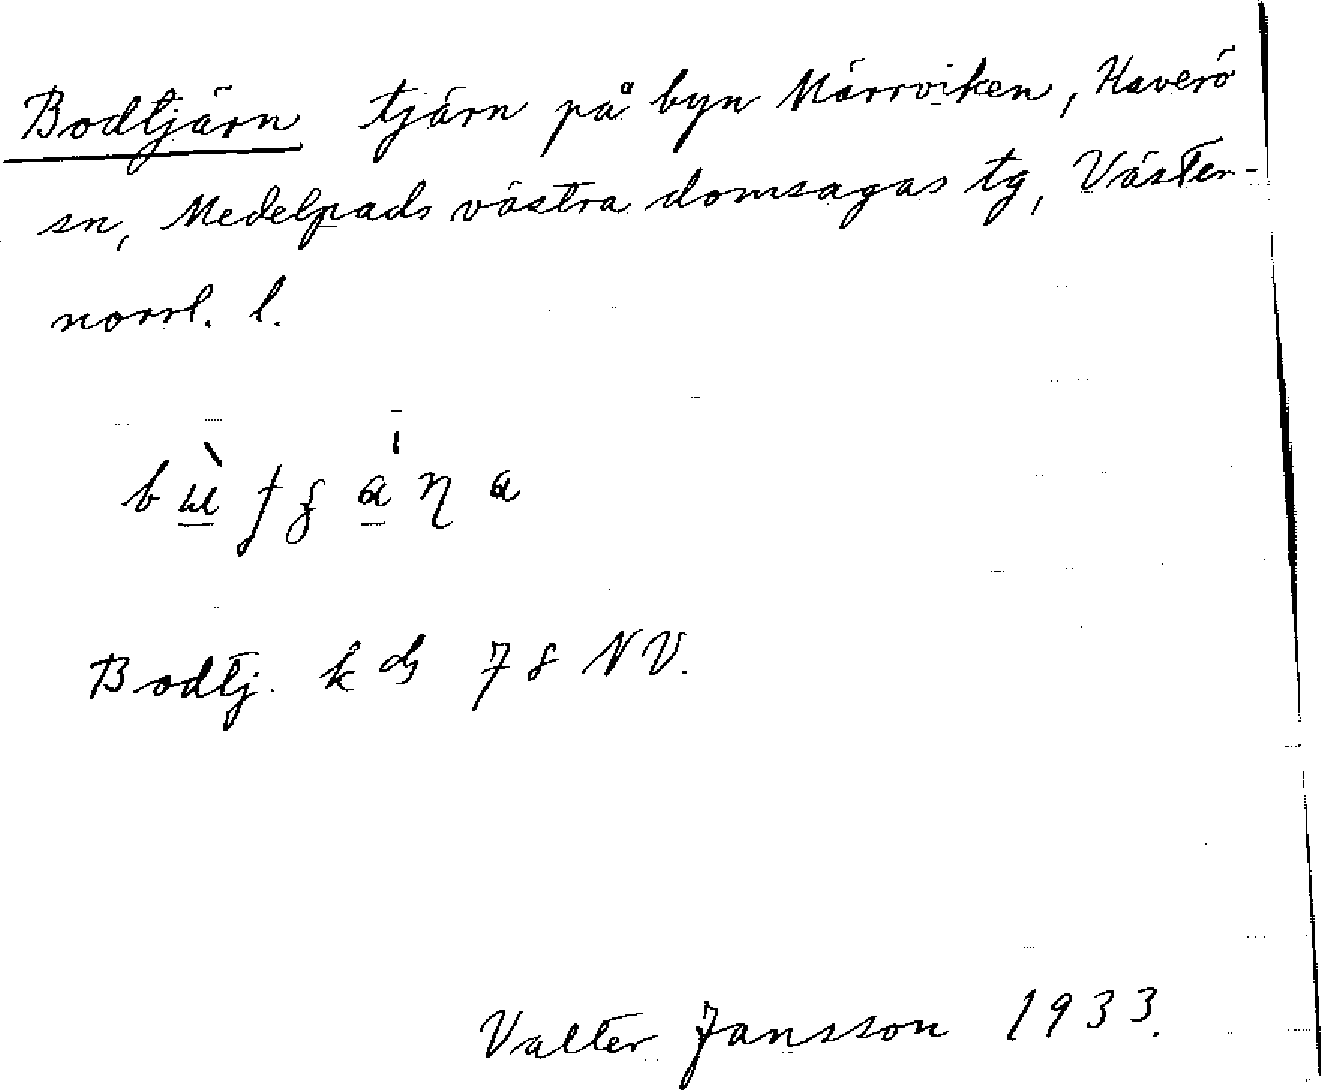 Bodtjärn tjärn på byn Märrviken, Haverö
sn, Medelpads västra domsagas tg, Väster-
norrl. l.
Bodtj. k ds 78 NV.
Valter Jansson 1933.